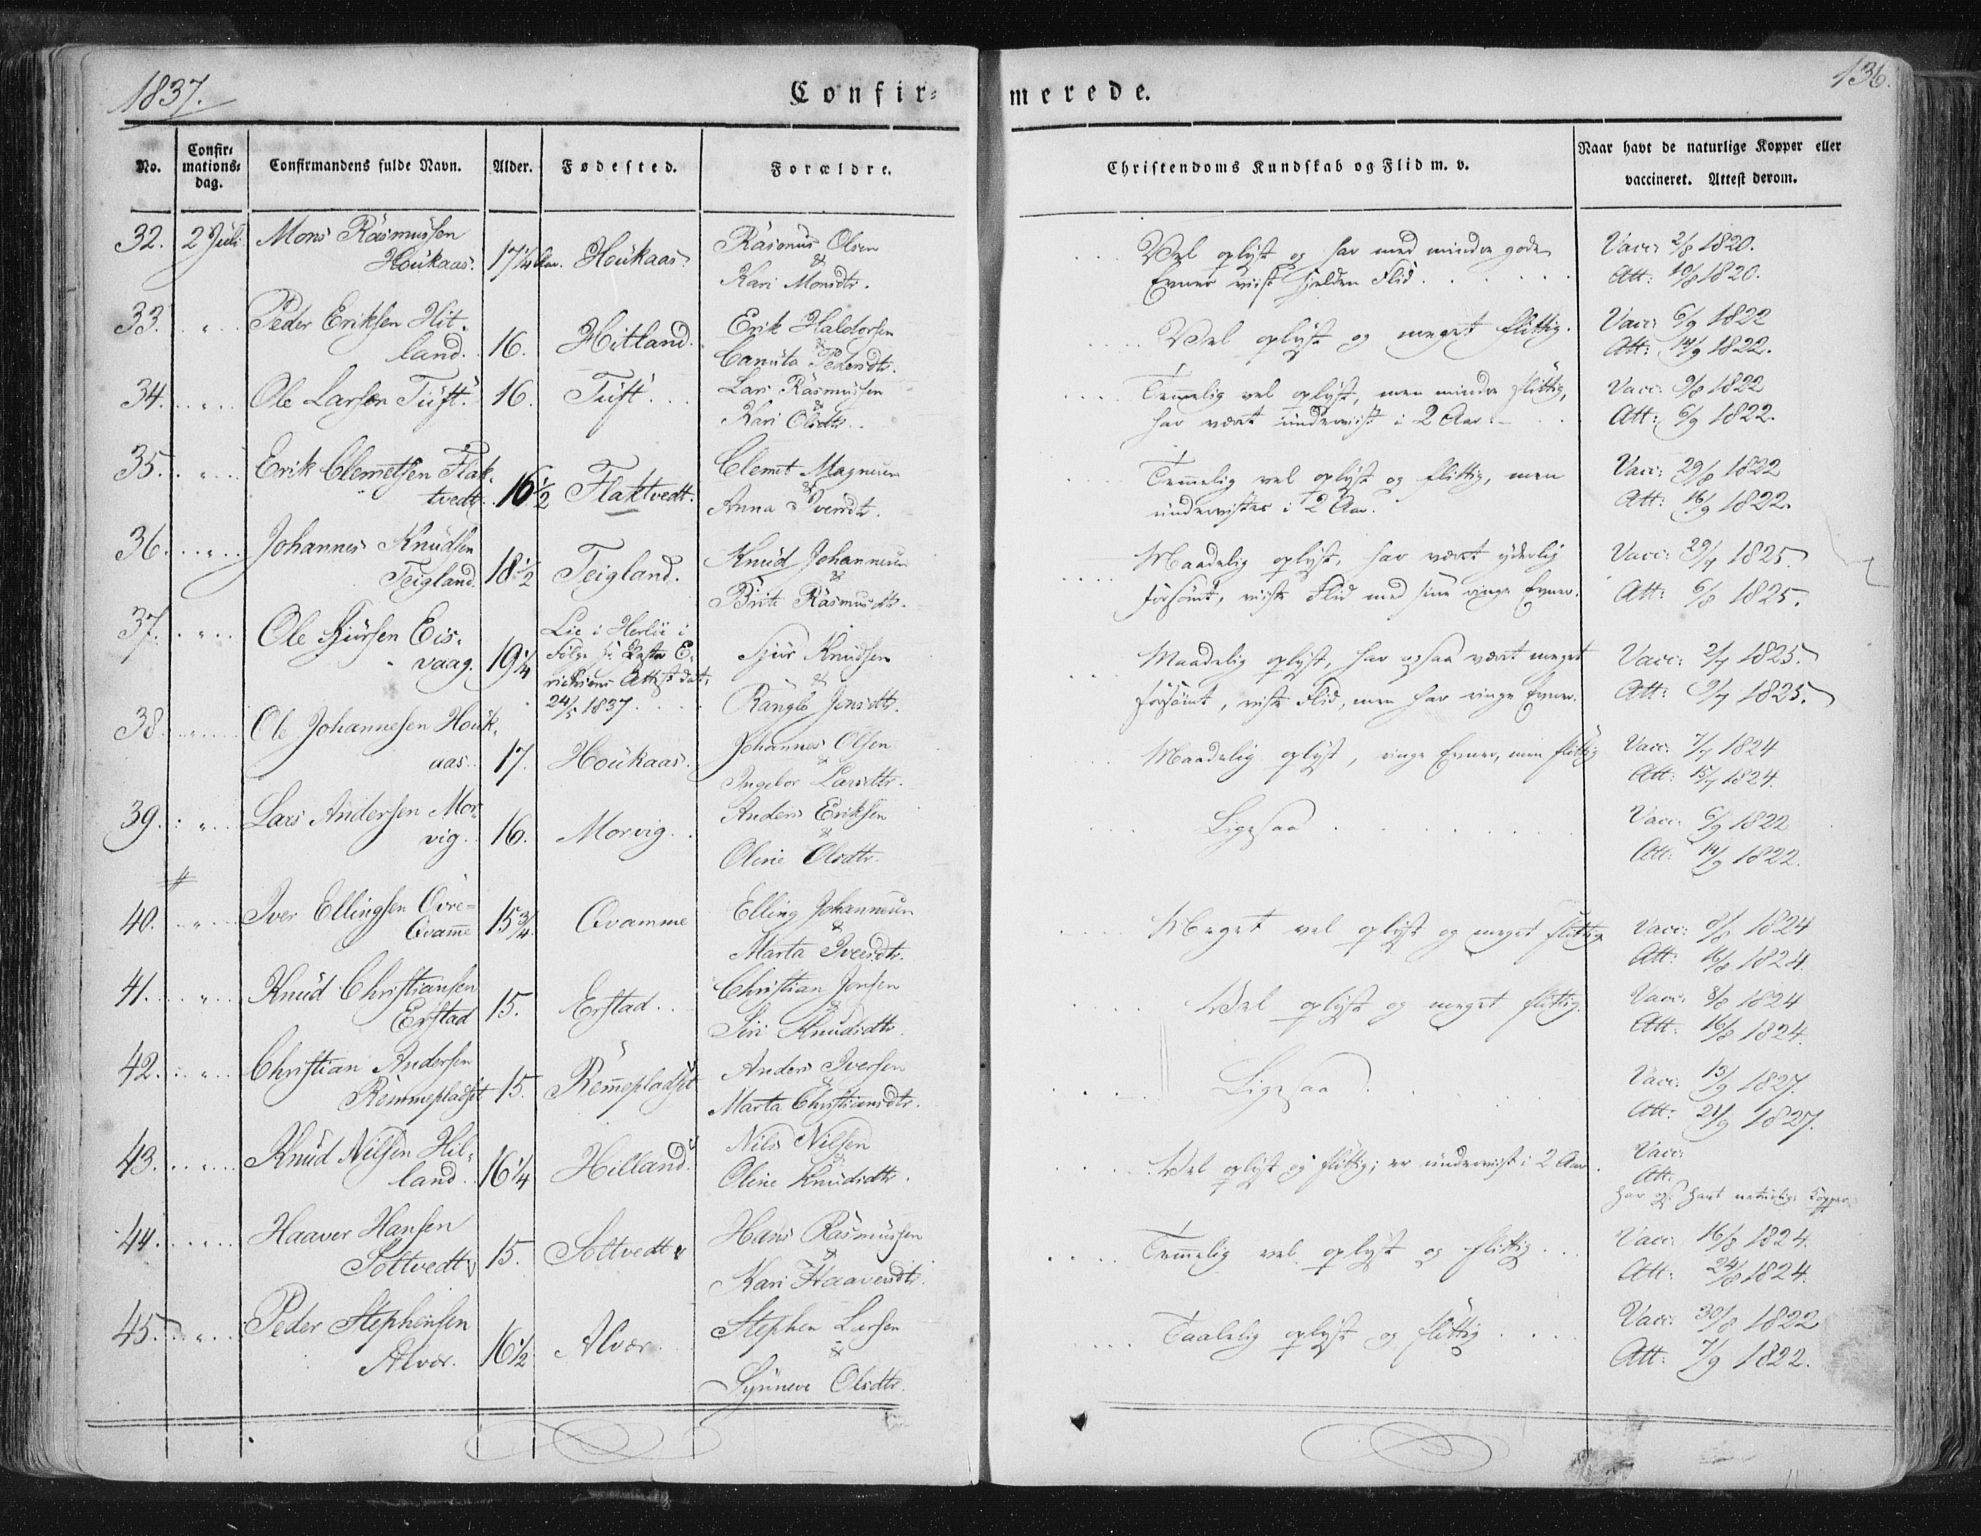 1837.
Confir=
merede.
136.
No.
Confir=
mations=
dag.
Confirmandens fulde Navn.
Alder.
Fødested.
Forældre.
Christendoms Kundskab og Flid m. v.
Naar havt de naturlige Kopper eller
vaccineret. Attest derom.
32. 2 Juli Mons Rasmussen
Houkaas. 17 1/4 Aar. Houkaas.
Rasmus Olsen
&
Kari Monsdtr.
Vel oplyst og har med mindre gode
Evner viist sjelden Flid.
Vacc: 2/8 1820.
Att: 10/8 1820.
33. " Peder Eriksen Hit-
land. 16. Hitland.
Erik Haldorsen
&
Canuta Pedersdtr.
Vel oplyst og meget flittig.
Vacc: 6/9 1822
Att: 14/9 1822.
34. " Ole Larsen Tuft. 16. Tuft.
Lars Rasmussen
&
Kari Olsdtr.
Temmelig vel oplyst, men mindre flittig,
har vært underviist i 2 Aar.
Vacc: 9/8 1822
Att: 6/9 1822.
35. " Erik Clemetsen Flak-
tvedt. 16 1/2 Flaktvedt.
Clemet Magnesen
&
Anna Iversdtr.
Temmelig vel oplyst og flittig, men
undervistes i 2 Aar.
Vacc: 29/8 1822
Att: 16/9 1822.
36. " Johannes Knudsen
Teigland. 18 1/2 Teigland.
Knud Johannesen
&
Brite Rasmusdtr.
Maadelig oplyst, har vært yderlig
forsømt, viiste Flid med sine ringe Evner.
Vacc: 29/7 1825.
Att: 6/8 1825.
37. " Ole Sjursen Eis-
vaag. 19 1/4
Lie i Herlø i
Følge Hr Pastor E-
richsens Attest dat.
24/5 1837.
Sjur Knudsen
&
Rangle Jonsdtr.
Maadelig oplyst, har ogsaa vært meget
forsømt, viiste Flid, men har ringe Evner.
Vacc: 2/7 1825.
Att: 9/7 1825.
38. " Ole Johannesen Houk-
aas. 17. Houkaas.
Johannes Olsen
&
Ingebor Larsdtr.
Maadelig oplyst, ringe Evner, men flittig
Vacc: 7/7 1824
Att: 15/7 1824.
39. " Lars Andersen Mor-
vig. 16. Morvig.
Anders Eriksen
&
Oline Olsdtr.
Ligesaa
Vacc: 6/9 1822
Att: 14/9 1822.
40. " Iver Ellingsen Øvre-
Qvamme 15 3/4 Qvamme
Elling Johannesen
&
Marta Iversdtr.
Meget vel oplyst og meget flittig
Vacc: 8/8 1824
Att: 16/8 1824.
41. " Knud Christiansen
Erstad 15. Erstad.
Christian Jonsen
&
Siri Knudsdtr.
Vel oplyst og meget flittig.
Vacc: 8/8 1824
Att: 16/8 1824.
42. " Christian Andersen
Remmepladset 15. Remmepladset
Anders Iversen
&
Marta Christiansdtr.
Ligesaa
Vacc: 13/9 1827.
Att: 21/9 1827.
43. " Knud Nilsen Hil-
land. 16 1/4 Hilland.
Nils Nilsen
&
Oline Knudsdtr.
Vel oplyst og flittig; er underviist i 2 Aar.
Vacc:
Att:
har havt naturlige Kopper
44. " Haaver Hansen
Soltvedt 15. Soltvedt
Hans Rasmussen
&
Kari Haaversdtr.
Temmelig vel oplyst og flittig.
Vacc: 16/8 1824.
Att: 24/8 1824.
45. " Peder Stephensen
Alvær. 16 1/2 Alvær.
Stephen Larsen
&
Synneve Olsdtr.
Taalelig oplyst og flittig
Vacc: 30/8 1822
Att: 7/9 1822.